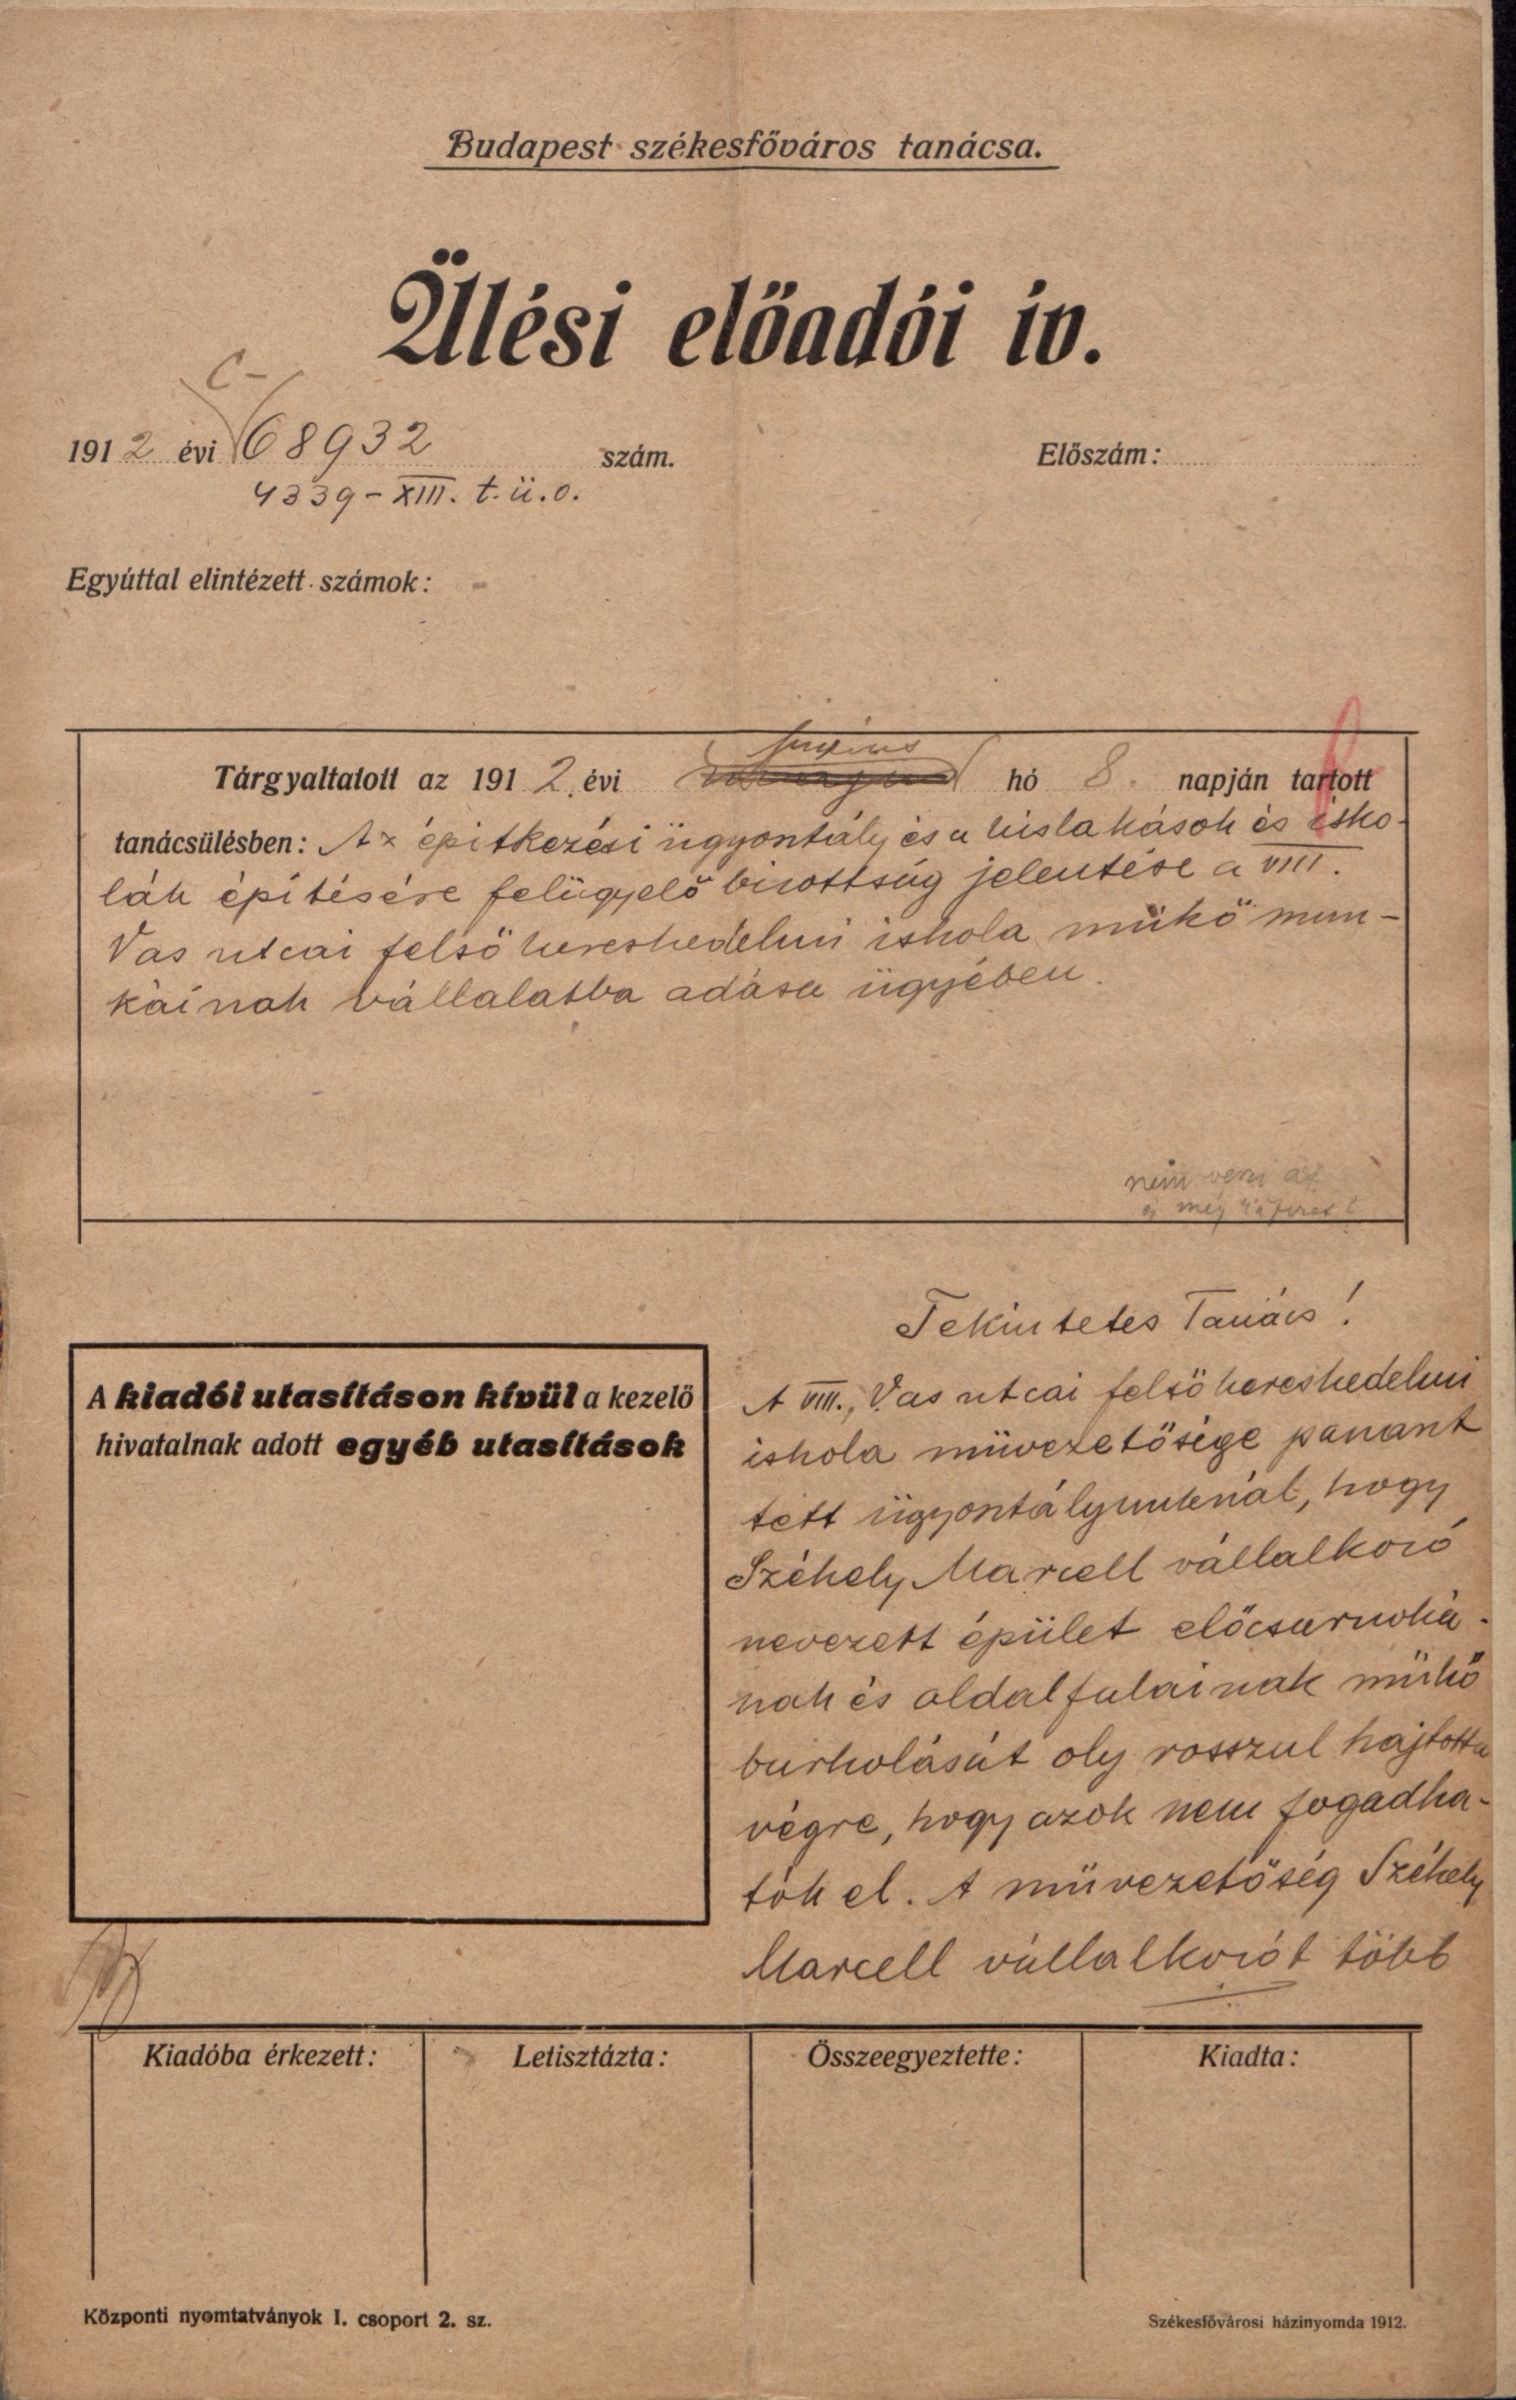 Budapest székesfőváros tanácsa.
Ülési előadói ív.
C-
1912 évi 68932 szám.
Előszám:
4339-XIII. t.ü.o.
Egyúttal elintézett számok: -
junius
Tárgyaltatott az 1912. évi hó 8. napján tartott
tanácsülésben: Az épitkezési ügyosztály és a kislakások és isko-
lák épitésére felügyelő bizottság jelentése a VIII.
Vas utcai felső kereskedelmi iskola műkő mun-
káinak vállalatba adása ügyében.
nem veszi át
Tekintetes Tanács!
A VIII., Vas utcai felső kereskedelmi
iskola művezetősége panaszt
tett ügyosztályunknál, hogy
Székely Marcell vállalkozó
nevezett épület előcsarnoká-
nak és oldalfalainak műkő
burkolását oly rosszul hajtotta
végre, hogy azok nem fogadha-
tók el. A művezetőség Székely
Marcell vállalkozót több
A kiadói utasításon kívül a kezelő
hivatalnak adott egyéb utasítások
Kiadóba érkezett:
Letisztázta:
Összeegyeztette:
Kiadta:
Központi nyomtatványok I. csoport 2. sz.
Székesfővárosi házinyomda 1912.